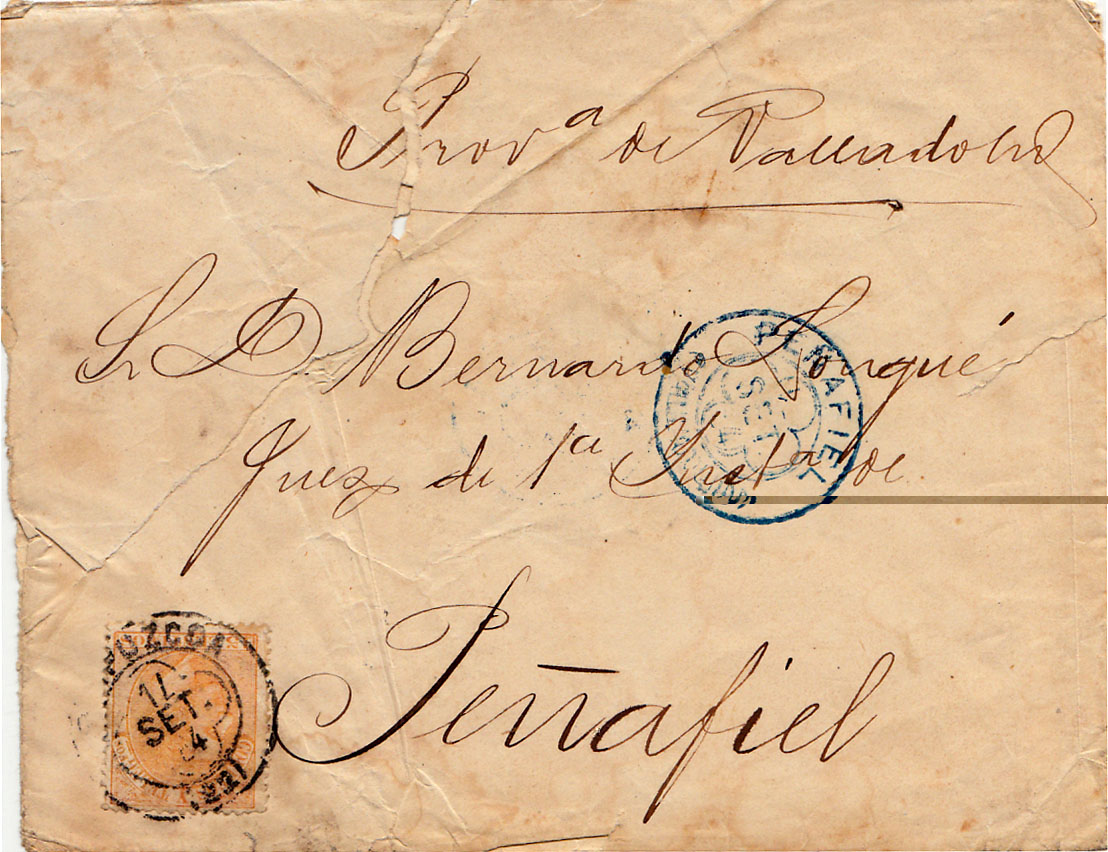 Provª de Valladolid
Sr D Bernardo Longué
Juez de 1ª Instª de
Peñafiel
PEÑAFIEL
SET
UZCOA
17
SET.
84
(22)